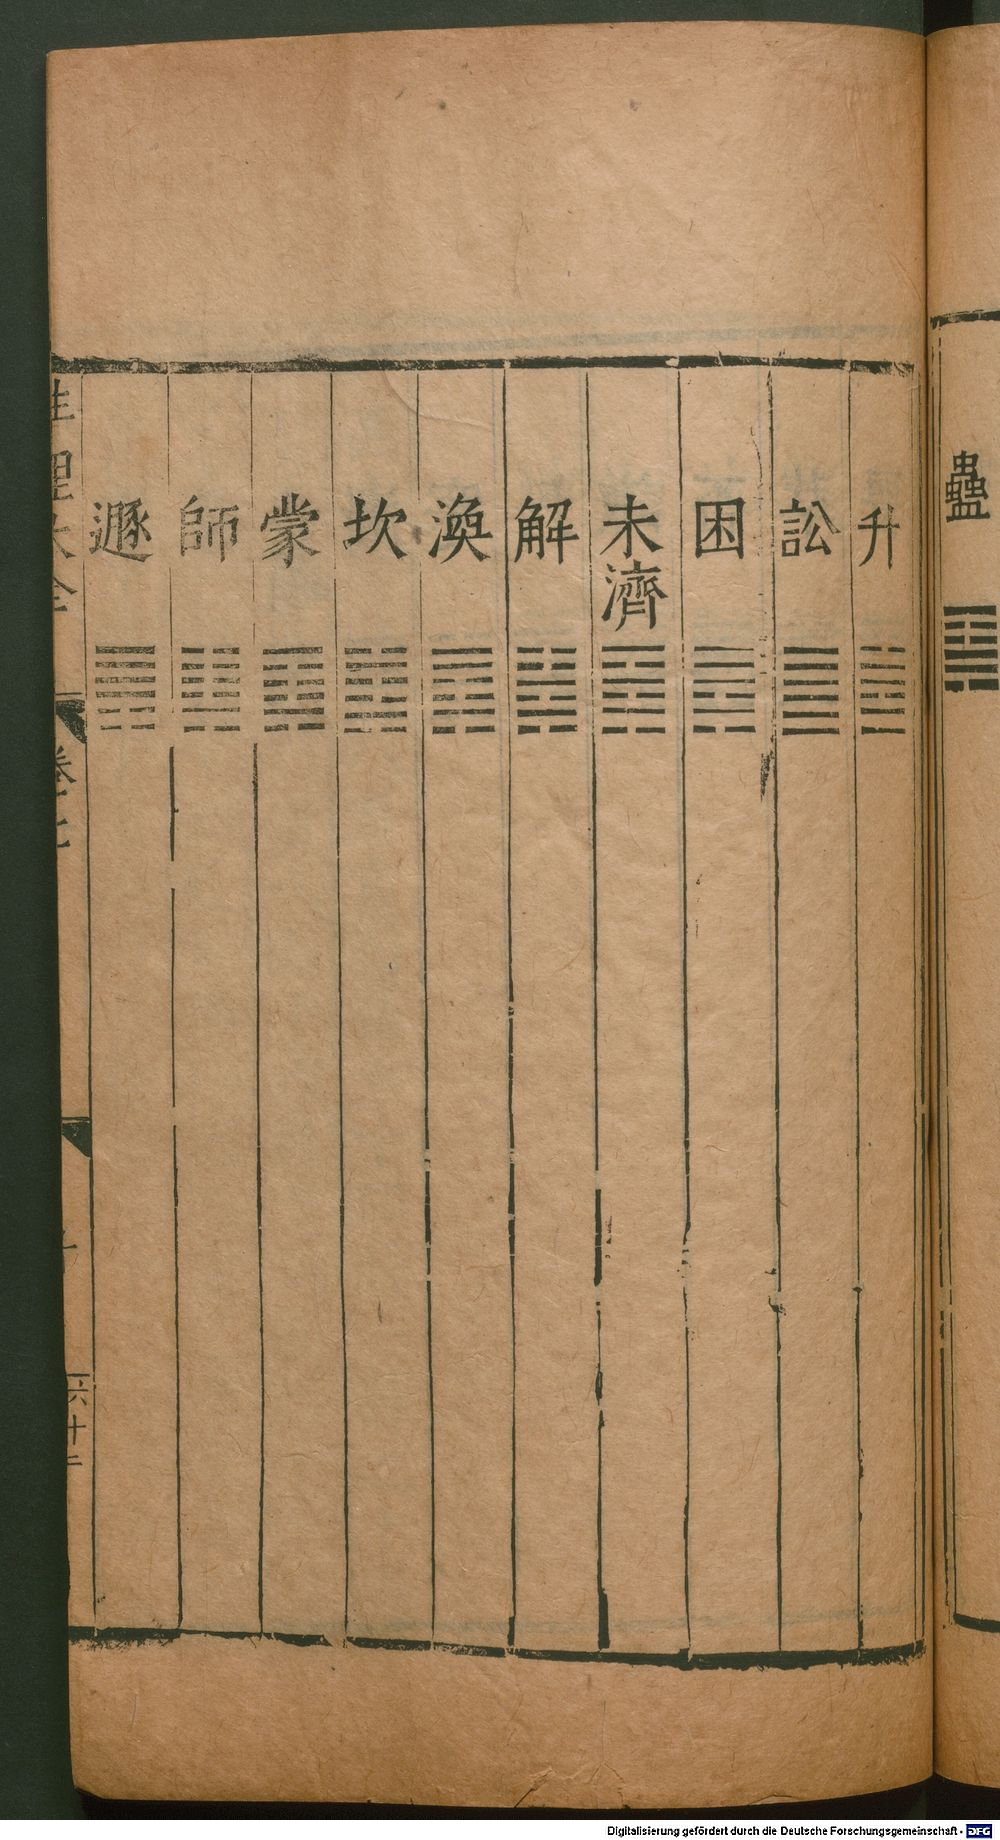 蠱
升
訟
困
未濟
解
渙
坎
蒙
師
遯
性理大全
卷之七
六十二
Digitalisierung gefördert durch die Deutsche Forschungsgemeinschaft - DFG